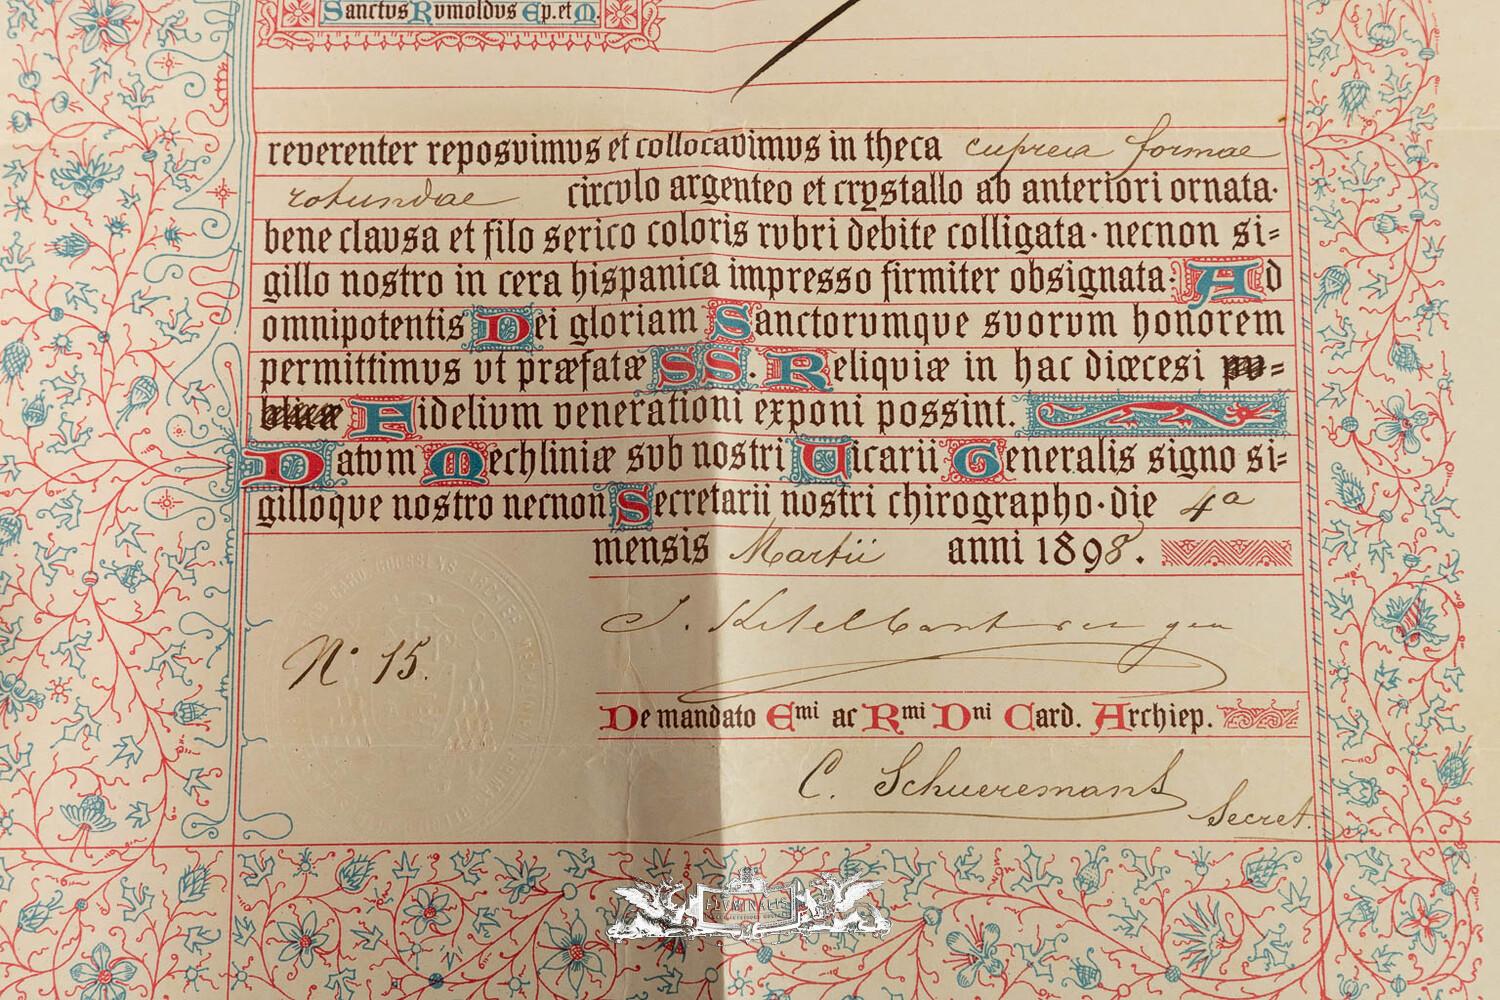 Sanctus Rumoldus Ep. et M.
reverenter reposuimus et collocavimus in theca cuprea formae
rotundae circulo argenteo et crystallo ab anteriori ornata·
bene clausa et filo serico coloris rubri debite colligata· necnon si=
gillo nostro in cera hispanica impresso firmiter obsignata: Ad
omnipotentis Dei gloriam Sanctorumque suorum honorem
permittimus ut præfatæ SS. Reliquiæ in hac diœcesi pu=
blicæ Fidelium venerationi exponi possint.
Datum Mechliniæ sub nostri Vicarii Generalis signo si=
gilloque nostro necnon Secretarii nostri chirographo· die 4a
mensis Martii anni 1898.
CARD. GOOSSENS ARCHIEP. MECHLINIEN
N° 15.
J.
De mandato Emi ac Rmi Dni Card. Archiep.
C. Schueremans
Secret.
LVMINALIS